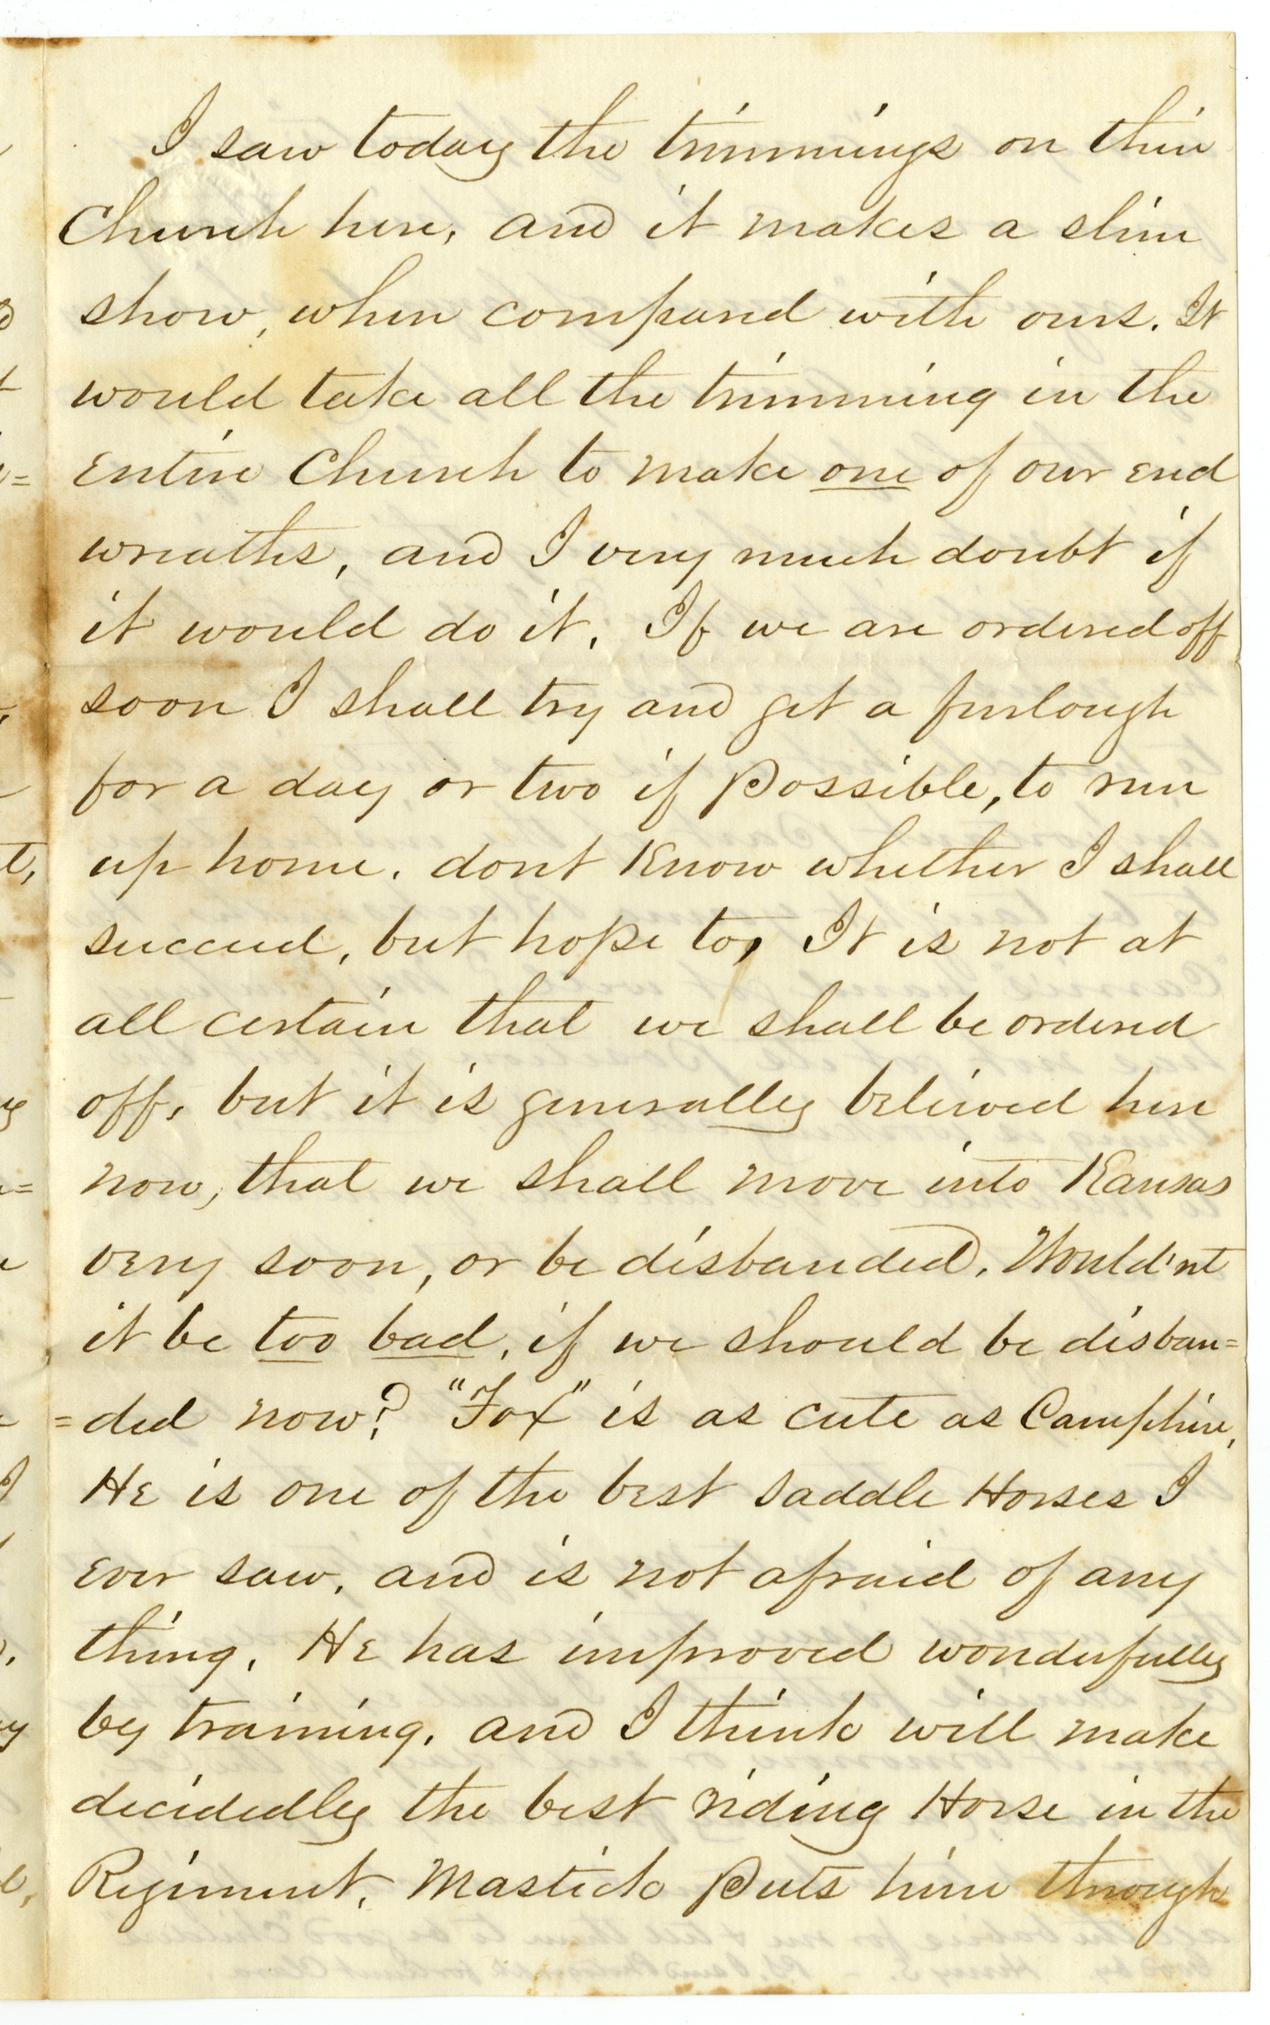 I saw today the trimmings on their
Church here, and it makes a slim
show, when compared with ours. It
would take all the trimming in the
entire Church to make one of our end
wreaths, and I very much doubt if
it would do it. If we are ordered off
soon I shall try and get a furlough
for a day or two if possible, to run
up home. dont Know whether I shall
succeed, but hope to, It is not at
all certain that we shall be ordered
off, but it is generally believed here
now, that we shall move into Kansas
very soon, or be disbanded. Would'nt
it be too bad, if we should be disban=
=ded now? "Fox" is as cute as Camphire,
He is one of the best saddle Horses I
ever saw, and is not afraid of any
thing. He has improved wonderfully
by training, and I think will make
decidedly the best riding Horse in the
Regiment. Mastick puts him through